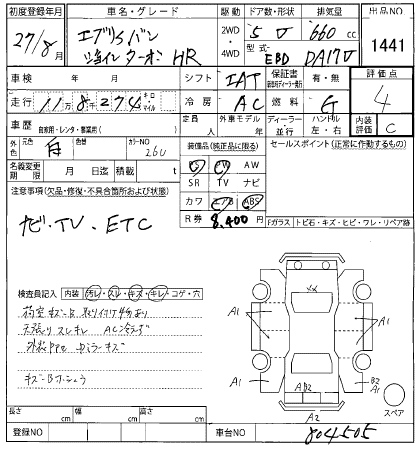 初度登録年月 車名・グレード 駆動 ドア数・形状 排気量 出品NO
27/8 エブリィバン HR 2WD 4WD 5 V 660 cc 1441
ターボ 型式 EBD DA17V
車検 年 月 シフト IAT 保証書 有・無 評価点
走行 11万8千274 キロ マイル 冷房 AC 燃料 G 4
車歴 自家用・レンタ・事業用( ) 定員 人 外車モデル年 ディーラー 並行 ハンドル 左・右 内装評価 C
外色 元色 白 色替 カラーNO 26U 装備品(純正品に限る) セールスポイント(正常に作動するもの)
名義変更期限 月 日迄 積載 t PS PW AW
SR TV ナビ
注意事項(欠品・修復・不具合箇所および状態) カワ エアB ABS
R券 8,400円 Fガラス トビ石・キズ・ヒビ・ワレ・リペア跡
ナビ・TV・ETC
検査員記入 内装 汚レ・スレ・キズ・キレ・コゲ・穴
荷室キズ・B 取り付け
天張りスレキレ
キズ・B
A1 A1 A1 A1
B2
A1
AB2
A2
スペア
長さ cm 幅 cm 高さ cm
登録NO 車台NO 804505